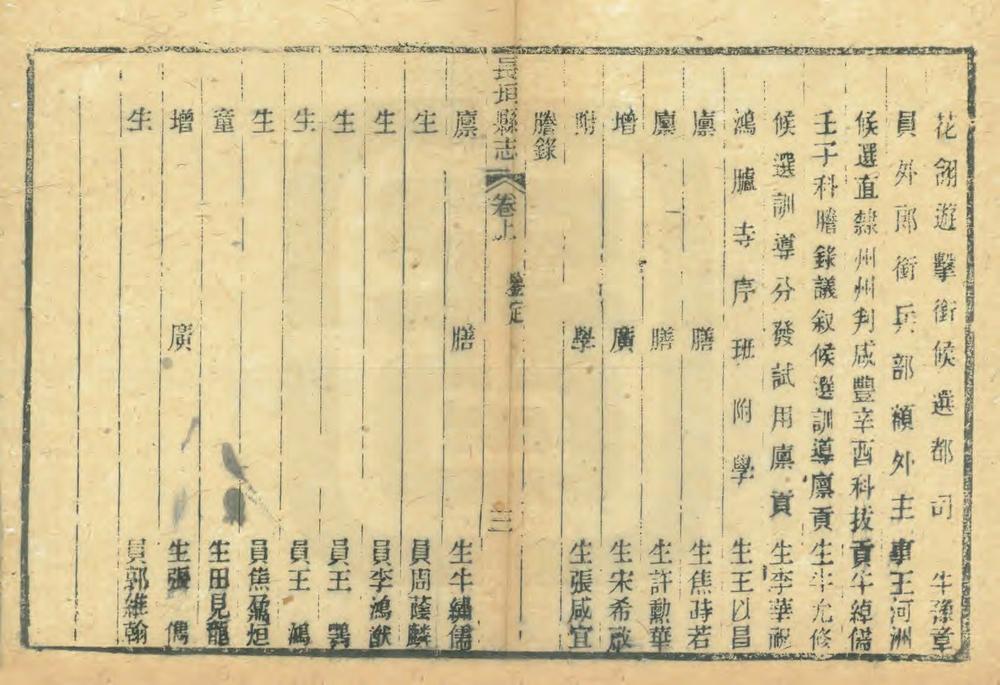 花翎遊擊銜候選都司牛孫章
員外郎銜兵部額外主事王河洲
候選直隸州州判咸豐辛酉科拔貢牛綽儒
壬子科謄錄議叙候選訓導廪貢生牛允修
候選訓導分發試用廪貢生李華
鴻臚寺序班附學生王以昌
廪膳生焦蒔若
廪膳生許勳華
增廣生宋希
附學生張咸宜
謄錄
長垣縣志 卷上 鑒定 三
廪膳生牛繡儒
生員周蔭麟
生員李鴻猷
生員王鶚
生員王鴻
生員焦炳烜
童生田見龍
增廣生張儁
生員郭維翰